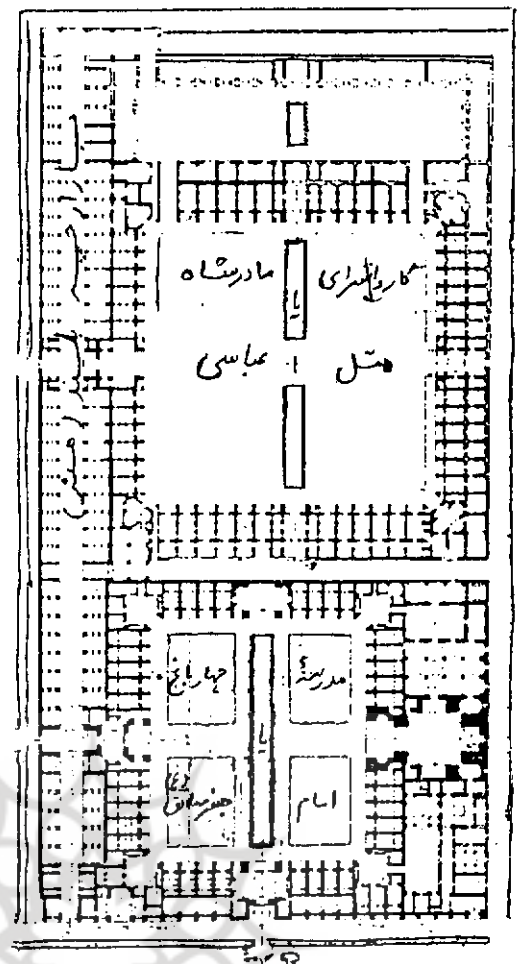 کاروانسرای مادرشاه
یا
هتل عباسی
مدرسهٔ چهارباغ
یا
امام جعفر صادق (ع)